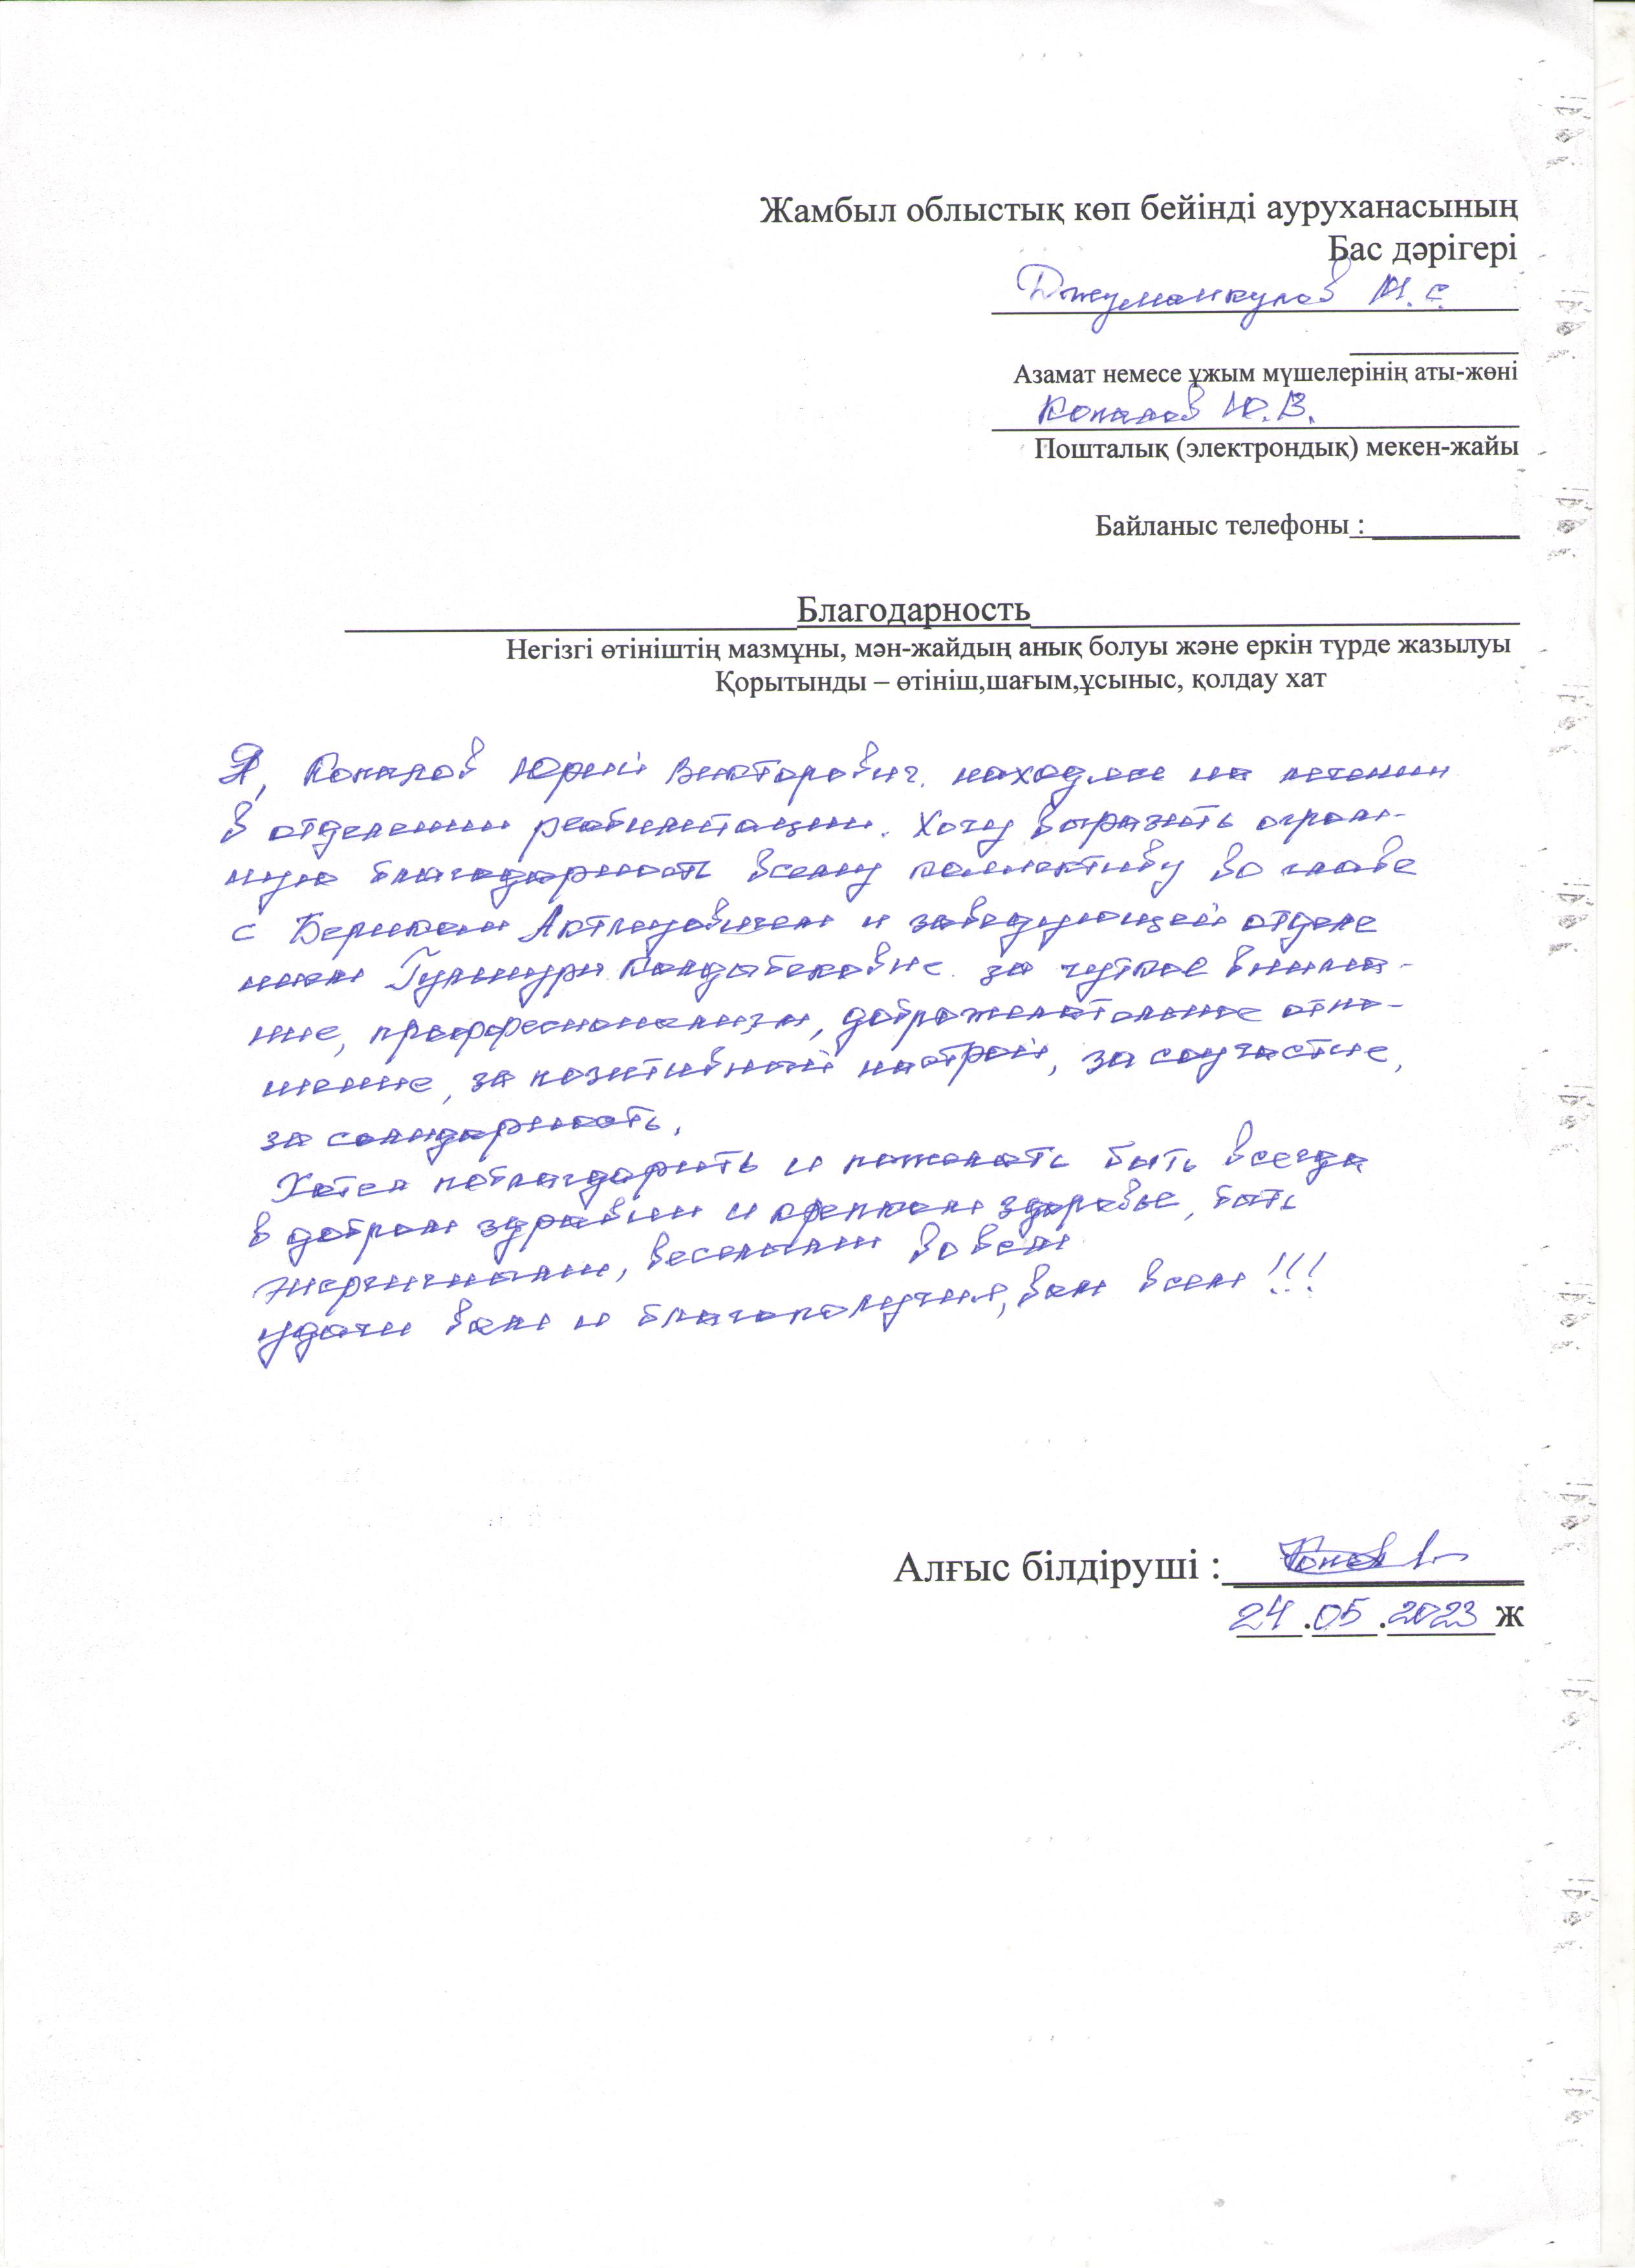 Жамбыл облыстық көп бейінді ауруханасының
Бас дәрігері
Джуманкулов М. С.
Азамат немесе ұжым мүшелерінің аты-жөні
Ю.В.
Пошталық (электрондық) мекен-жайы
Байланыс телефоны :
Благодарность
Негізгі өтініштің мазмұны, мән-жайдың анық болуы және еркін түрде жазылуы
Қорытынды – өтініш,шағым,ұсыныс, қолдау хат
Я, Юрий Викторович. находясь на лечении
в отделении реабилитации. Хочу выразить огром-
ную благодарность всему коллективу во главе
с Бериком и заведующей отделе
нием за чуткое внима-
ние, профессионализм, доброжелательное отно-
шение, за позитивный настрой, за соучастие,
за солидарность.
Хотел поблагодарить и пожелать быть всегда
в добром здравии и крепком здоровье, быть
энергичными, веселыми во всем
удачи вам и благополучия, вам всем!!!
Алғыс білдіруші :
24.05.2023 ж